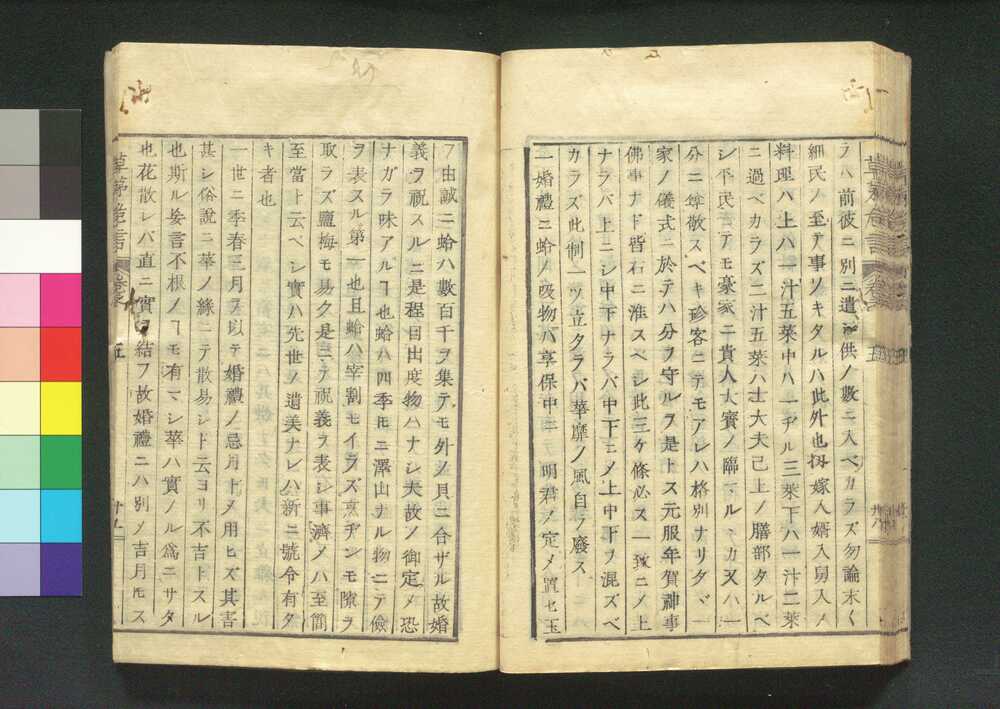 ラハ前彼ニ別ニ遣ハ供ノ數ニ入ベカラズ勿論末〱
細民ノ至テ事ソキタルハ此外也扨嫁入婿入舅入ノ
料理ハ上ハ一汁五菜中ハ一ヂル三菜下ハ一汁二菜
ニ過ベカラズ二汁五菜ハ士大夫已上ノ膳部タルベ
シ平民ニテモ豪家ニ貴人大賓ノ臨ムルニカ又ハ一
分ニ尊敬スベキ珍客ニテモアレハ格別ナリタヾ一
家ノ儀式ニ於テハ分ヲ守ルヲ是トス元服年賀神事
佛事ナド皆右ニ准スベシ此三ケ條必ス一致ニメ上
ナラバ上ニシ中下ナラバ中下ニメ上中下ヲ混ズベ
カラズ此制一ツ立タラバ華靡ノ風自ラ廢ス
一婚禮ニ蛤ノ吸物ハ享保中ニ 明君ノ定メ置セ玉
フ由誠ニ蛤ハ數百千ヲ集テモ外ノ貝ニ合ザル故婚
義ヲ祝スルニ是程目出度物ハナシ夫故ノ御定メ恐
ナガラ味アルヿ也蛤ハ四季トモニ澤山ナル物ニテ儉
ヲ表スル第一也且蛤ハ宰割モイラズ烹ヂンモ隙ヲ
取ラズ鹽梅モ易ク是ニテ祝義ヲ表シ事濟メハ至簡
至當ト云ベシ實ハ先世ノ遺美ナレハ新ニ號令有タ
キ者也
一世ニ季春三月ヲ以テ婚禮ノ忌月トメ用ヒズ其害
甚シ俗說ニ華ノ緣ニテ散易シト云ヨリ不吉トスル
也斯ル妄言不根ノヿモ有マシ華ハ實ノル爲ニサタ
也花散レバ直ニ實ヲ結フ故婚禮ニハ別ノ吉月トモス
草茅危言
卷之
五
廿五